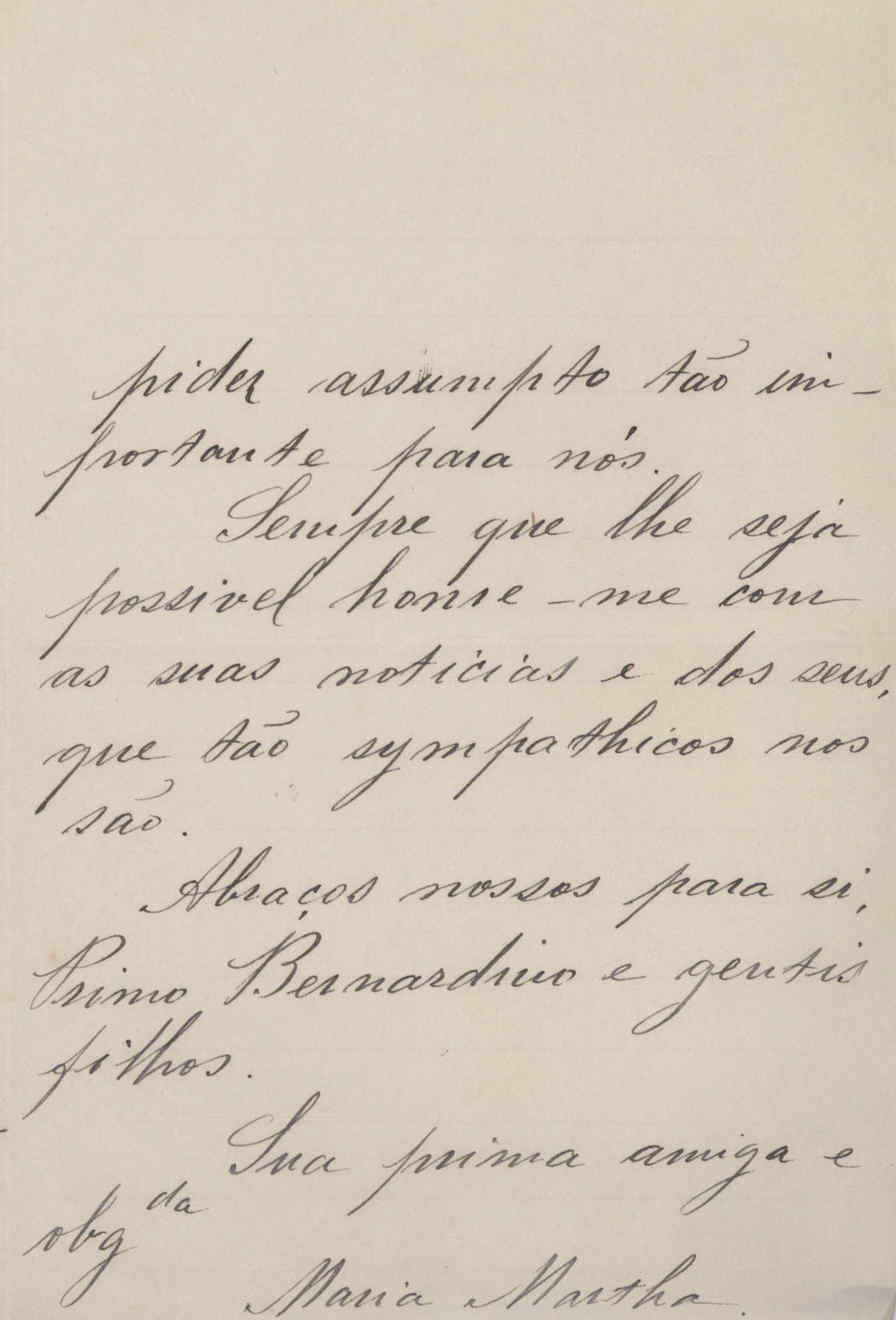 pider assumpto tão im-
portante para nós.
Sempre que lhe seja
possivel honre-me com
as suas noticias e dos seus,
que tão sympathicos nos
são.
Abraços nossos para si,
Primo Bernardino e gentis
filhos.
Sua prima amiga e
obgda
Maria Martha.